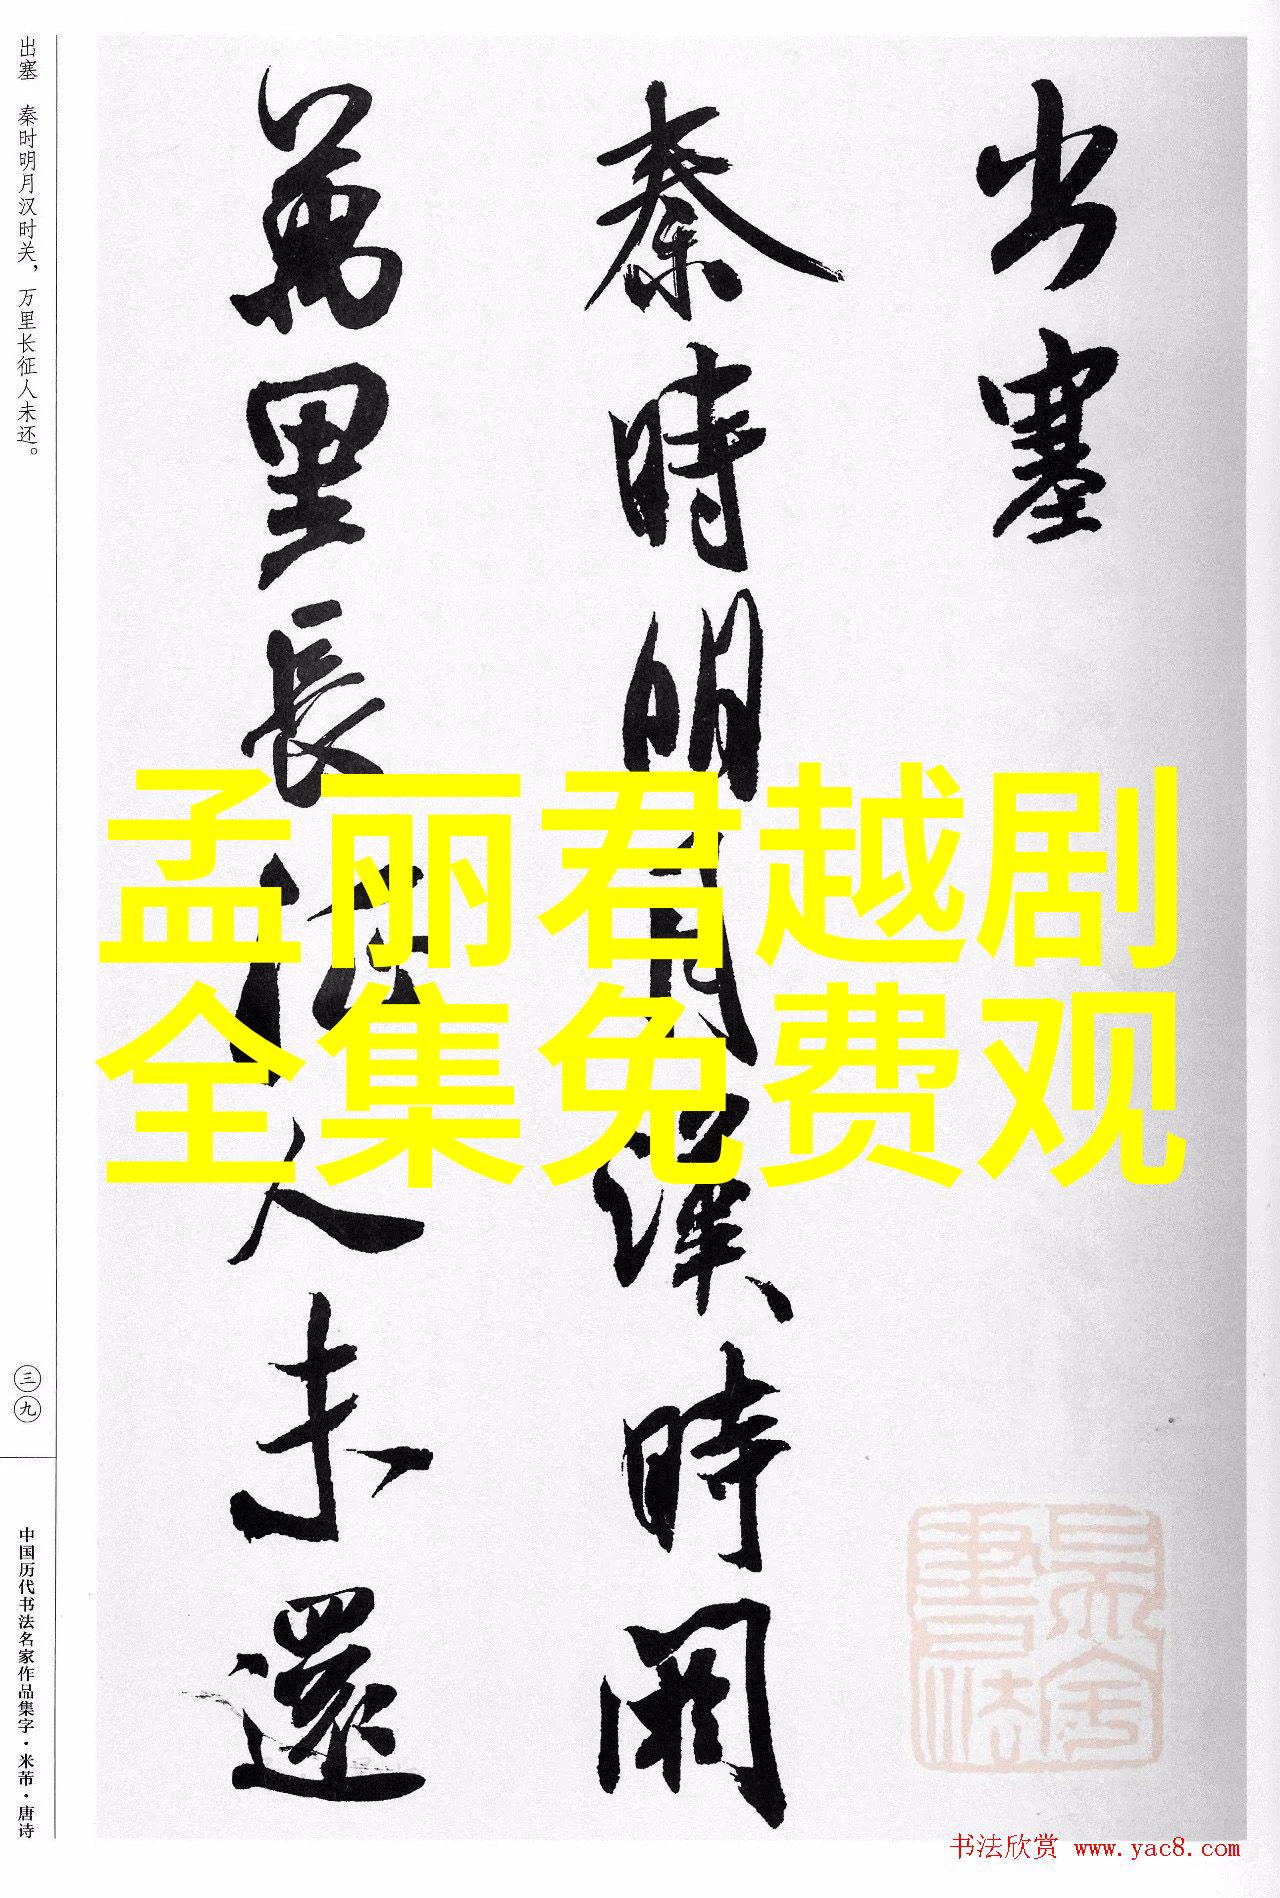 出塞
秦時明月漢時関
萬里長征人未還
孟丽君越剧
全集免费观
出塞 秦时明月汉时关，万里长征人未还。
三九
中国历代书法名家作品集字·米芾·唐诗
书法欣赏 www.yac8.com